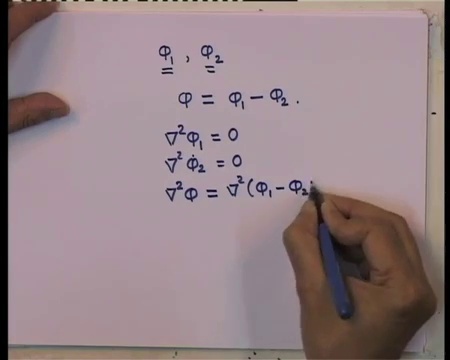 φ₁ , φ₂
φ = φ₁ − φ₂ .
∇²φ₁ = 0
∇²φ₂ = 0
∇²φ = ∇²(φ₁ − φ₂